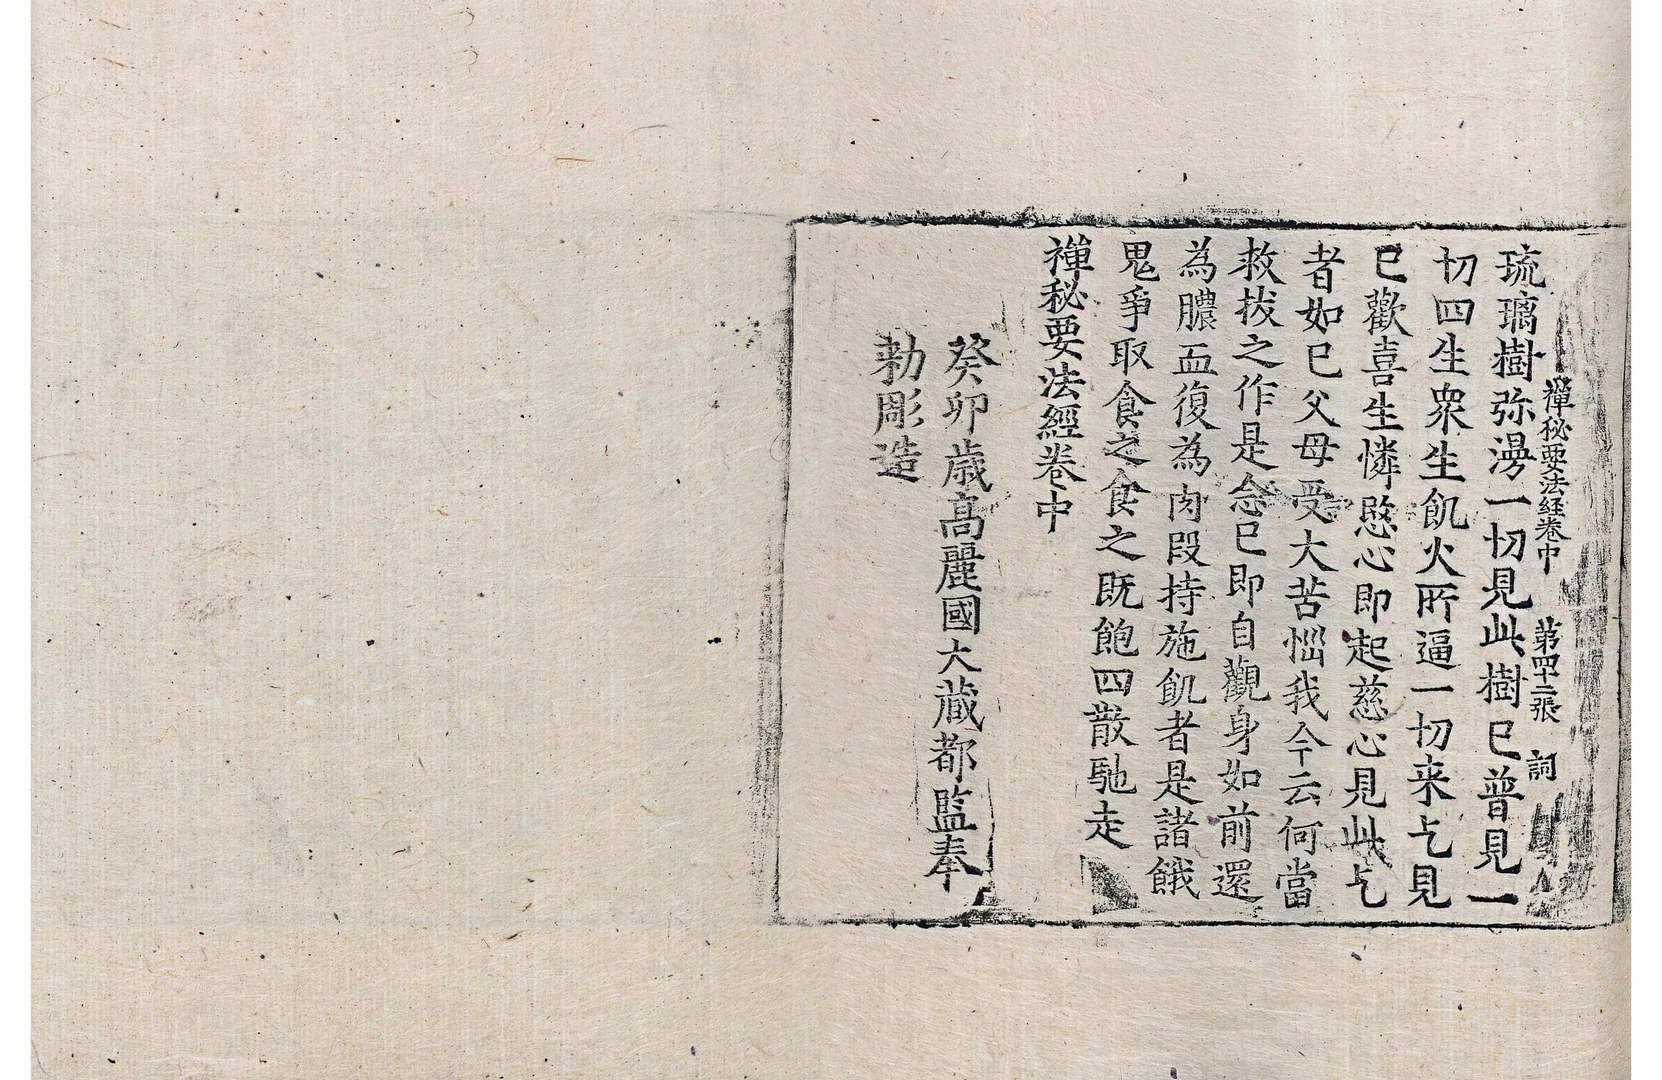 禪秘要法経卷中 第四十二張 詞
琉璃樹弥滿一切見此樹已普見一
切四生衆生飢火所逼一切来乞見
已歡喜生憐愍心即起慈心見此乞
者如己父母受大苦惱我今云何當
救拔之作是念已即自觀身如前還
為膿血復為肉段持施飢者是諸餓
鬼爭取食之食之既飽四散馳走
禪秘要法經卷中
癸卯歲高麗國大藏都監奉
勅彫造